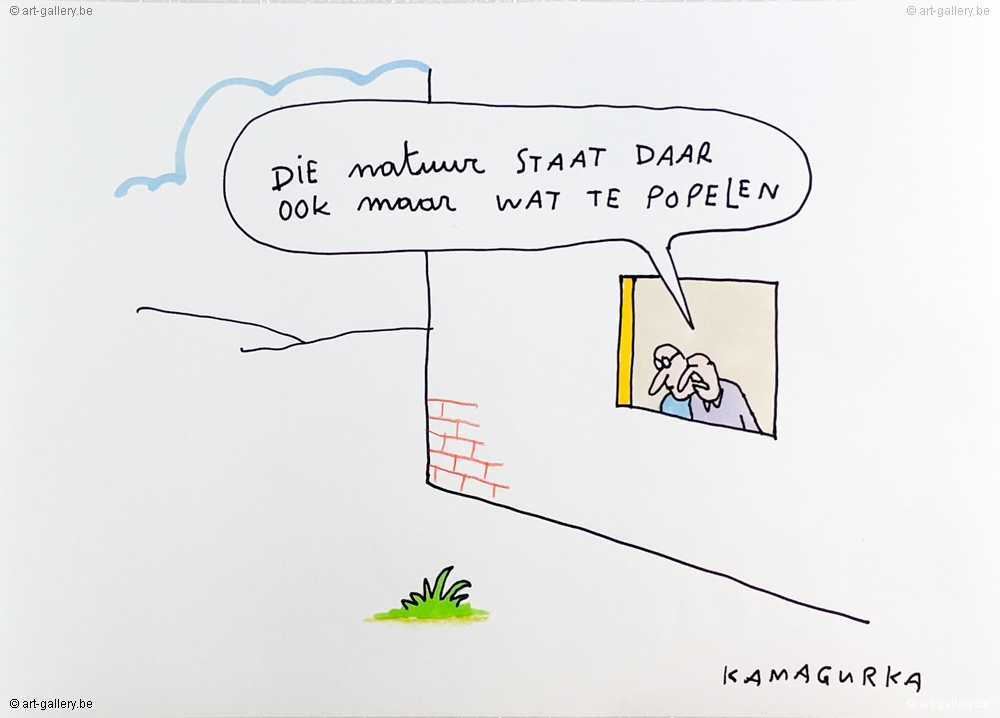 © art-gallery.be
© art-gallery.be
DiE natuur STAAT DAAR
OOK maar WAT TE POPELEN
KAMAGURKA
© art-gallery.be
© art-gallery.be